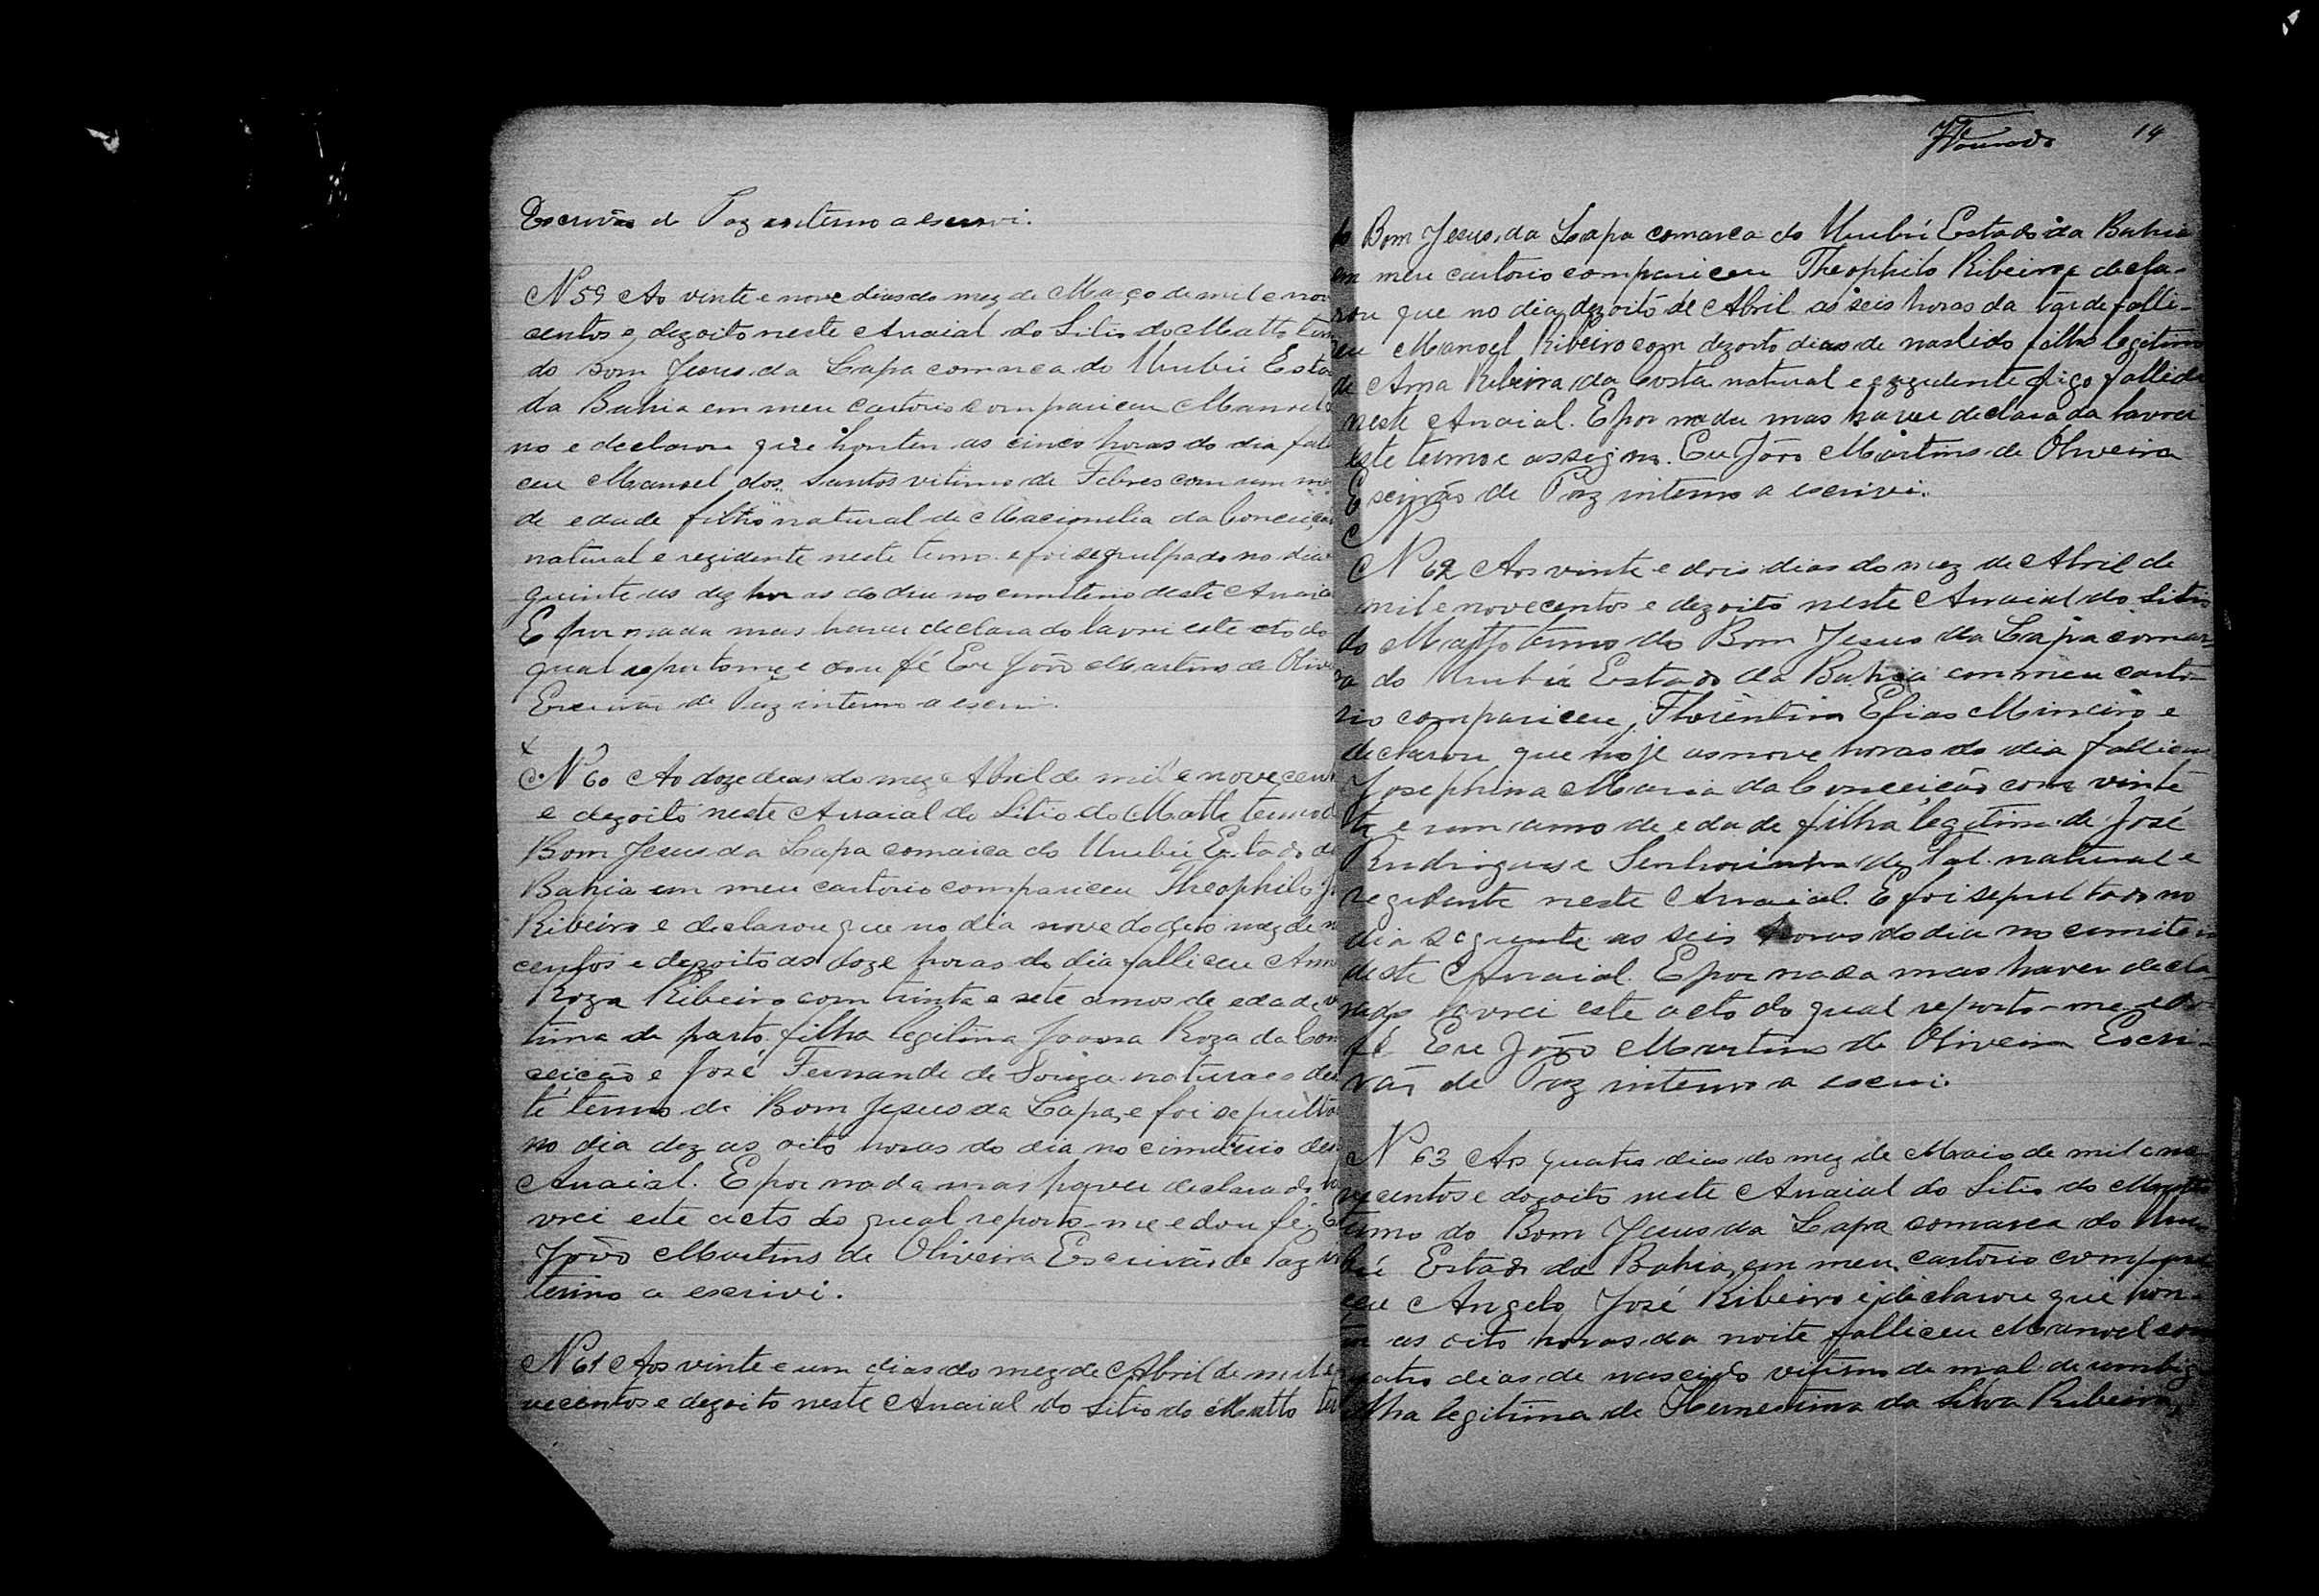 Escrivão de Paz interino a escrevi.
N 59 Ao vinte e nove dias do mez de Março de mil e nov
centos e dezoito neste Arraial do Sitio do Matto ter
do Bom Jesus da Lapa comarca do Urubú Esta
da Bahia em meu cartorio compariceu Manoel
no e declarou que honten as cinco horas do dia fal
ceu Manoel dos Santos vitimo de Febres com um m
de edade filho natural de da Conceiçã
natural e rezidente neste termo e foi sepulpado no dia
guinte as dez horas do dia no cimiterio deste Arraia
E por nada mas haver declarado lavrei este cto do
qual reportome e dou fé Eu João Martins de Olive
Escrivão de Paz interino a escrivi.
N 60 Ao doze dias do mez Abril de mil e novecen
e dezoito neste Arraial do Sitio do Matto termo d
Bom Jesus da Lapa comarca do Urubú Estado d
Bahia em meu cartorio compariceu Theophilo J
Ribeiro e declarou que no dia nove do dito mez de n
centos e dezoito as doze horas do dia falliceu Ann
Roza Ribeiro com trinta e sete annos de edade v
tima de parto filha legitima Joanna Roza da Con
ceição e José Fernande de Souza naturaes des
te termo de Bom Jesus da Lapa, e foi sepulta
no dia dez as oito horas do dia no cimiterio des
Arraial. E por nada mas haver declarado la
vrei este acto do qual reporto-me e dou fé. E
João Martins de Oliveira Escrivão de Paz in
terino a escrivi.
N 61 Aos vinte e um dias do mez de Abril de mil e
vecentos e dezoito neste Arraial do Sitio do Matto ter
14
do Bom Jesus da Lapa comarca do Urubú Estado da Bahia
em meu cartorio compariceu Theophilo Ribeiro e decla-
rou que no dia dezoito de Abril as seis horas da tarde falli-
ceu Manoel Ribeiro com dezoito dias de nascido filho legitimo
de Anna Ribeira da Costa natural e digo fallido
neste Arraial. E por nada mas haver declarada lavrei
este termo e assigno. Eu João Martins de Oliveira
Escrivão de Paz interino a escrivi.
N 62 Aos vinte e dois dias do mez de Abril de
mil e novecentos e dezoito neste Arraial do Sitio
do Matto termo do Bom Jesus da Lapa comar
ca do Urubú Estado da Bahia em meu carto-
rio compariceu, Florentino Elias Mineiro e
declarou que hoje as nove horas do dia falliceu
Josephina Maria da Conceição com vinte
ta e um anno de edade filha legitima de José
Rudrigues e Senhorinha natural e
rezidente neste Arraial. E foi sepultado no
dia seguente as seis horas do dia no cimiterio
deste Arraial. E por nada mas haver decla-
rado lavrei este acto do qual reporto-me e dou
fé Eu João Martins de Oliveira Escri-
vão de Paz interino a escrivi.
N 63 Aos quatro dias do mez de Maio de mil e no
vecentos e dezoito neste Arraial do Sitio do Matto
termo do Bom Jesus da Lapa comarca do Uru
bú Estado da Bahia, em meu cartorio compari
ceu Angelo José Ribeiro e declarou que hon-
ten as oito horas da noite falliceu Manoel com
quatro dias de nascido vitimo de mal de umbig
filha legitima de Hernestina da Silva Ribeiro,